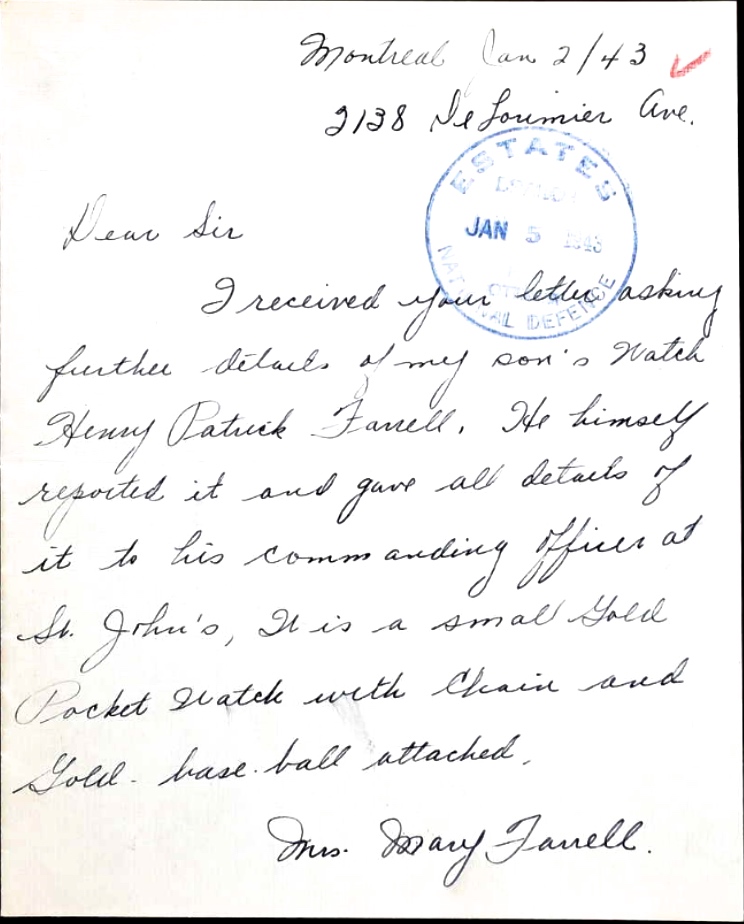 Montreal Jan 2/43
2138 De Lorimier Ave.
ESTATES
JAN 5 1943
NATIONAL DEFENCE
Dear Sir
I received your letter asking
further details of my son's Watch
Henry Patrick Farrell. He himself
reported it and gave all details of
it to his commanding officer at
St. John's, It is a small Gold
Pocket Watch with Chain and
Gold - base-ball attached.
Mrs. Mary Farrell.